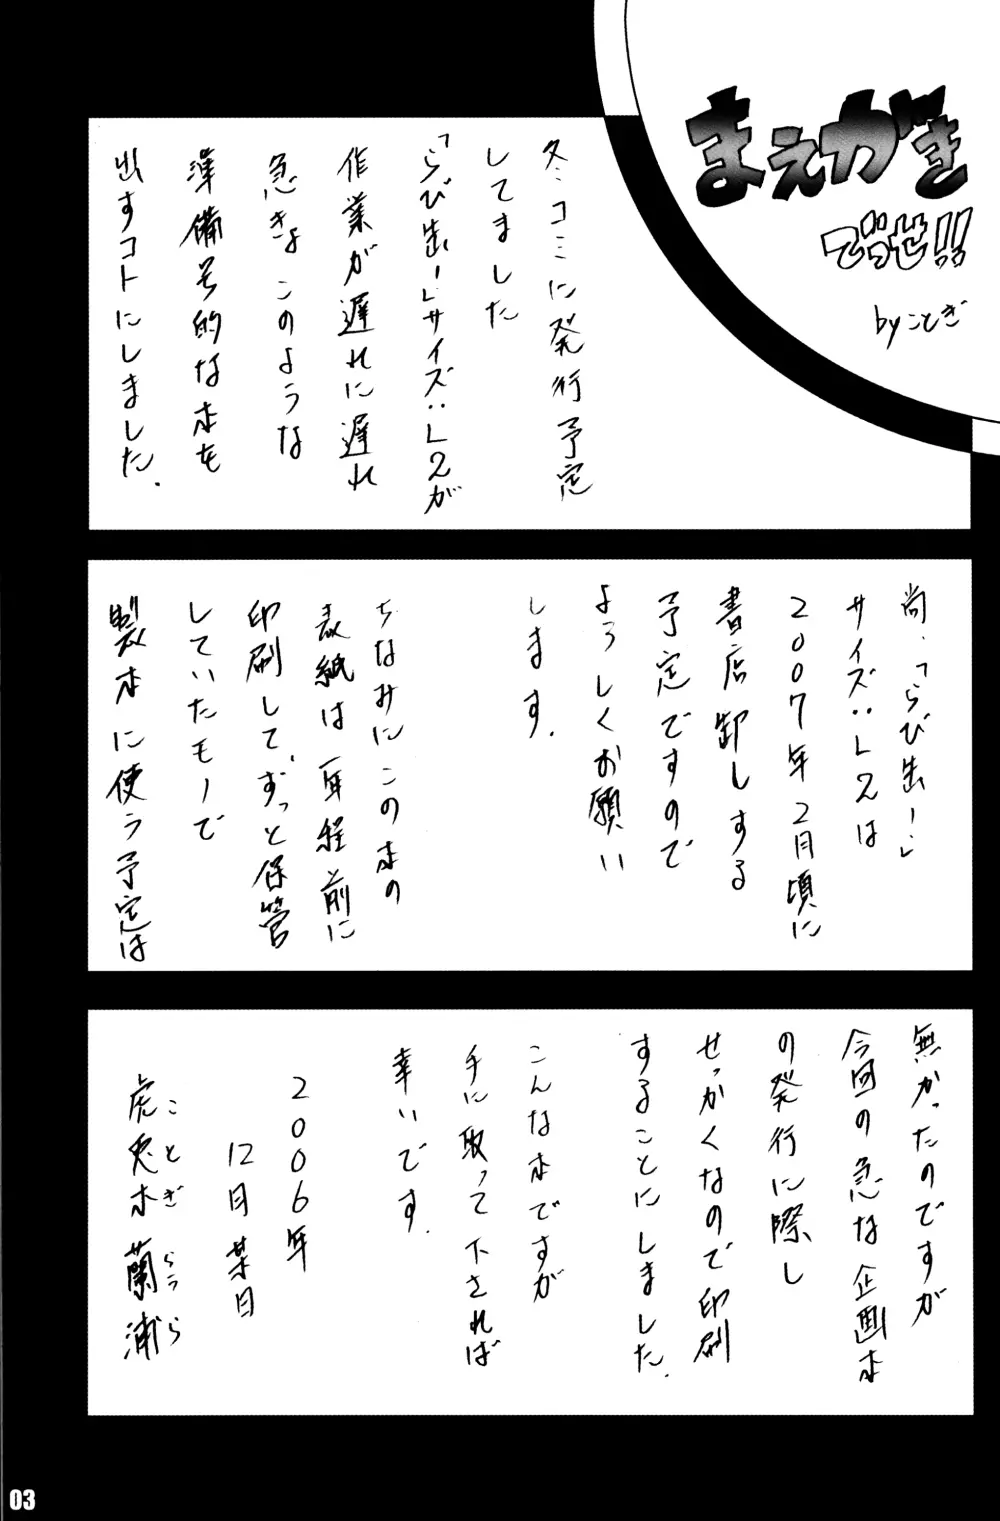 まえがき
でっせ!!
byことぎ
冬コミに発行予定
してました
「らび出!」サイズ:L2が
作業が遅れに遅れ
急きょこのような
準備号的な本を
出すコトにしました.
尚、「らび出!」
サイズ:L2は
2007年2月頃に
書店卸しする
予定ですので
よろしくお願い
します.
ちなみにこの本の
表紙は一年程前に
印刷して、ずっと保管
していたモノで
製本に使う予定は
無かったのですが
今回の急な企画本
の発行に際し
せっかくなので印刷
することにしました.
こんな本ですが
手に取って下されば
幸いです.
2006年
12月某日
虎兎木蘭浦
ことぎ らうら
03